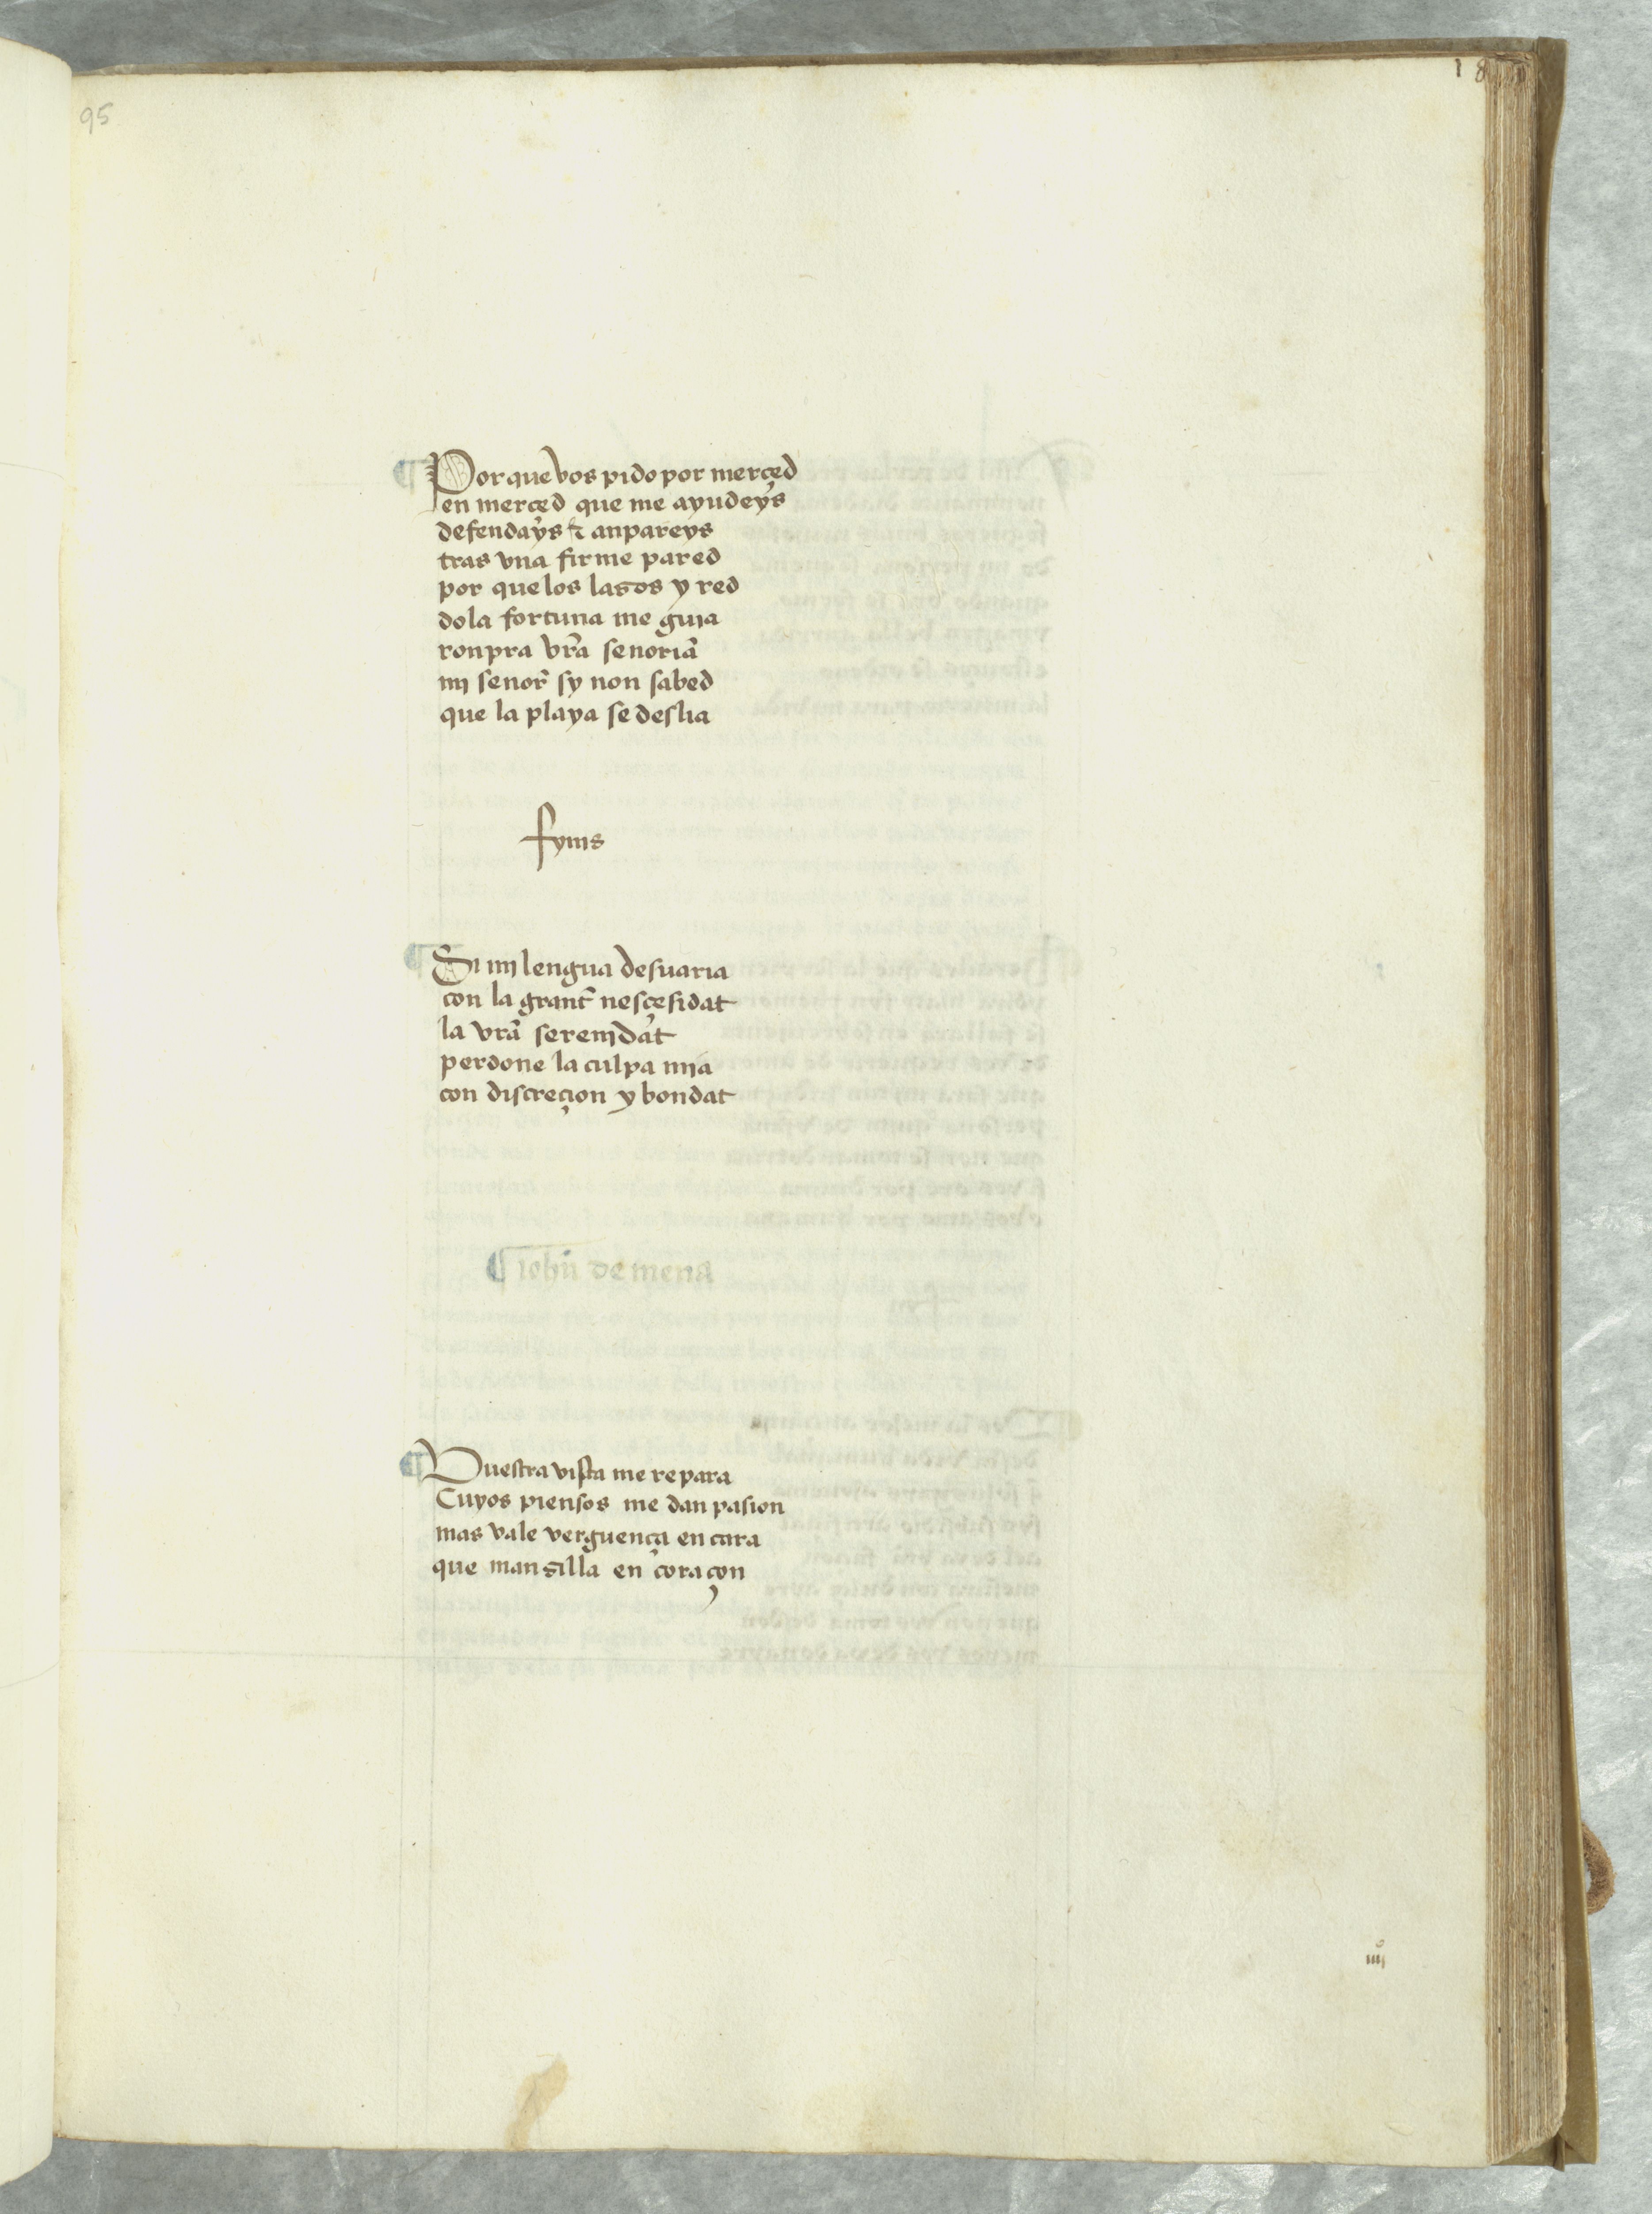 95
18
¶ Por que vos pido por merçed
en merçed que me ayudeys
defendays & anpareys
tras vna firme pared
por que los lasos y red
do la fortuna me guia
ronpra vr̃a senoria
mi senor sy non sabed
que la playa se deslia
fynis
¶ Si mi lengua desuaria
con la grant nesçesidat
la vr̃a serenidat
perdone la culpa mia
con discreçion y bondat
¶ iohñ de mena
¶ Vuestra vista me repara
Cuyos piensos me dan pasion
mas vale verguença en cara
que mansilla en coraçon
iiijº